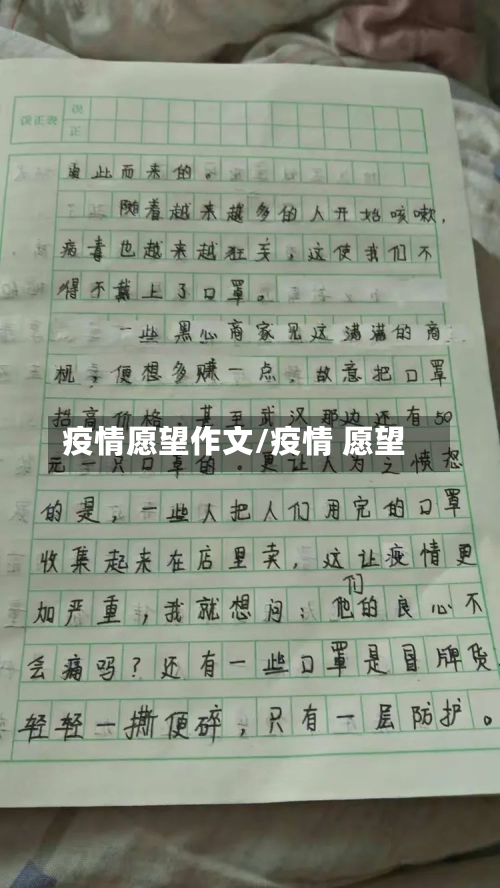 误正表
误
正
更止而来的。
随着越来越多的人开始咳嗽,
病毒也越来越狂妄,这使我们不
得不戴上了口罩。
一些黑心商家见这满满的商
机,便想多赚一点,故意把口罩
抬高价格,甚至武汉那边还有50
疫情愿望作文/疫情 愿望
元一只口罩的。更让人为之愤怒
的是,一些人把人们用完的口罩
收集起来在店里卖,这让疫情更
加严重,我就想问:他们的良心不
会痛吗?还有一些口罩是冒牌货
轻轻一撕便碎,只有一层防护。